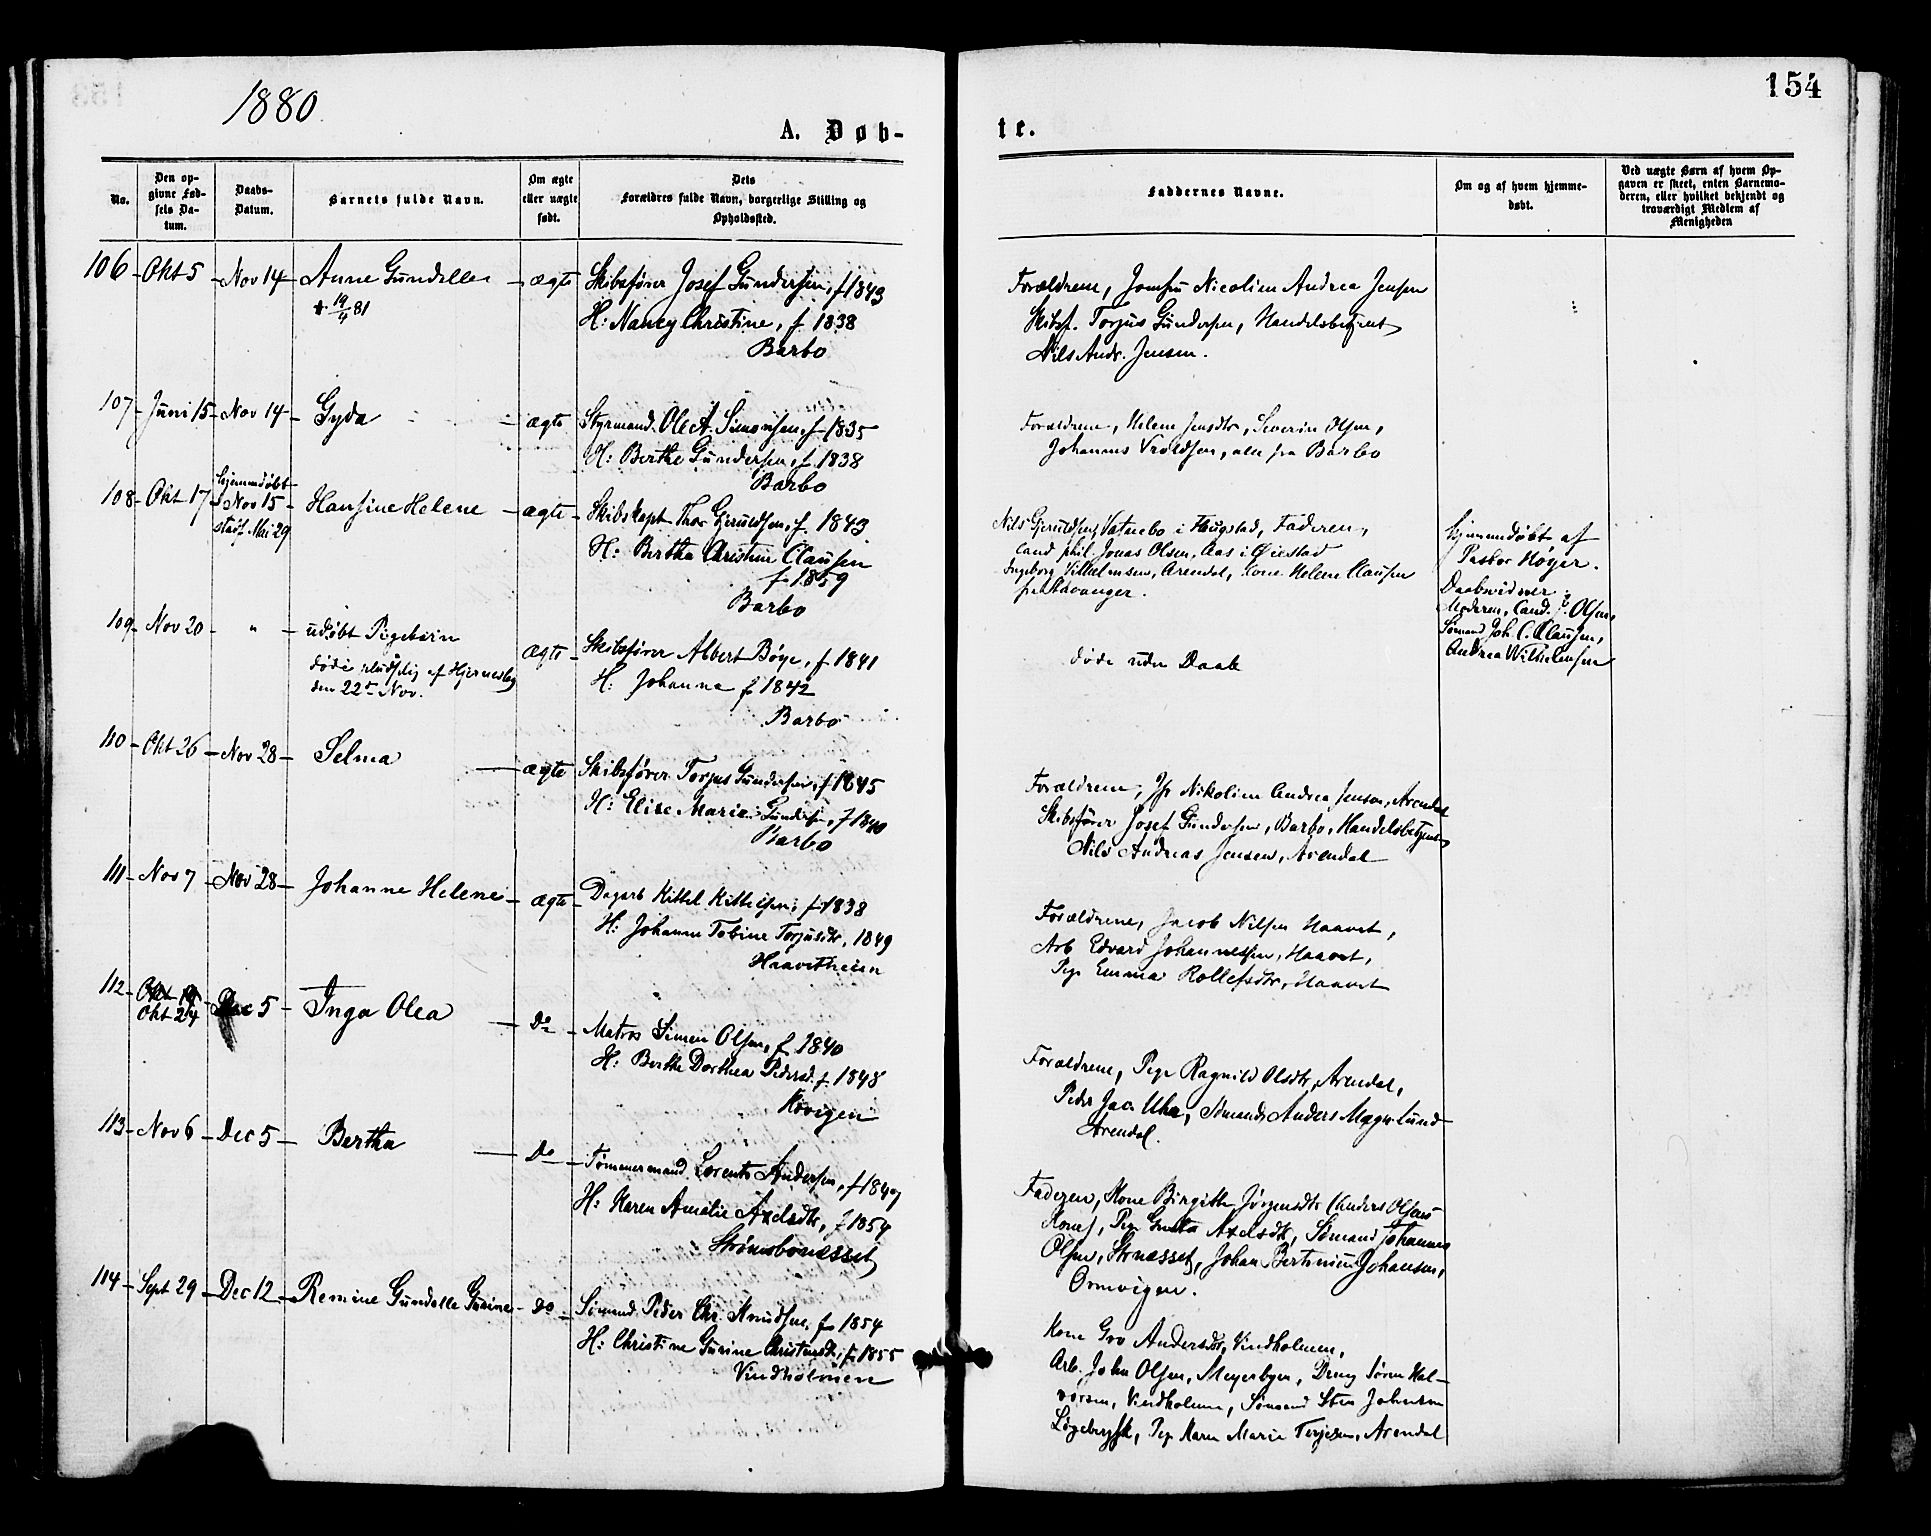 1880.
154
A. Døb-
te.
No.
Den op-
givne Fød-
sels Da-
tum.
Daabs-
Datum.
Barnets fulde Navn.
Om ægte
eller uægte
født.
Dets
Forældres fulde Navn, borgerlige Stilling og
Opholdssted.
Faddernes Navne.
Om og af hvem hjemme-
døbt.
Ved uægte Børn af hvem Op-
gaven er skeet, enten Barnemo-
deren, eller hvilket bekjendt og
troværdigt Medlem af
Menigheden
106 - Okt 5 - Nov 14 - Anne Gundelle - ægte
+ 19/4 81
Skibsfører Josef Gundersen, f 1843
H: Nancy Christine, f 1838
Barbo
Forældrene, Jomfru Nicoline Andrea Jensen
Skibsf. Torjus Gundersen, Handelsbetjent
Nils Andr. Jensen.
107 - Juni 15 - Nov 14 - Gyda - ægte
Styrmand Ole A. Simonsen, f 1835
H: Berthe Gundersen, f 1838
Barbo
Forældrene, Helene Jensdtr, Severin Olsen,
Johannes Troldsen, alle fra Barbo
108 - Okt 17 - hjemmedøbt
Nov 15
stadf. Mai 29
Hansine Helene - ægte
Skibskapt Thor Gjeruldsen, f 1843
H: Bertha Christine Clausen
f 1859
Barbo
Nils Gjeruldsen, Vatnebo i Flugstad, Faderen,
cand phil Jonas Olsen, Aas i Øiestad
Ingeborg Vilhelmsen, Arendal, Kone Helene Clausen
fra Stavanger.
hjemmedøbt af
Pastor Høyer.
Daabsvidner:
Moderen, Cand. P. Olsen,
Sømand Joh. C. Clausen,
Andrea Wilhelmsen
109 - Nov 20 - " - udøbt Pigebarn
døde pludselig af Hjerneslag
den 22de Nov.
ægte -
Skibsfører Albert Bøye, f 1841
H: Johanna f 1842
Barbo
døde uden Daab
110 - Okt 26 - Nov 28 - Selma - ægte
Skibsfører Torjus Gundersen, f 1845
H: Elise Marie Gundersen, f 1840
Barbo
Forældrene, Jfr Nikoline Andrea Jensen, Arendal
Skibsfører Josef Gundersen, Barbo, Handelsbetjent
Nils Andreas Jensen, Arendal
111 - Nov 7 - Nov 28 - Johanne Helene - ægte -
Dagarb Kittel Kittelsen, f 1838
H: Johanne Tobine Torjusdtr, 1849
Haavetheien
Forældrene, Jacob Nilsen Haavet,
Arb Edvard Johannessen, Haavet,
Pige Emma Rollefsdtr, Haavet
112 - Okt 24 - Dec 5 - Inga Olea - Do -
Matros Simen Olsen, f 1840
H: Berthe Dorthea Pedersd. f. 1848
Kovigen
Forældrene, Pige Ragnild Olsdtr, Arendal,
Peder Jac. Uhr, Sømand Anders Magn. Lund
Arendal.
113 - Nov 6 - Dec 5 - Bertha - Do -
Tømmermand Lorents Andersen, f 1847
H: Karen Amalie Axelsdtr, f 1854
Strømsbonesset
Faderen, Kone Birgitte Jørgensdtr (Anders Olsens
Kone), Pige Axelsdtr, Sømand Johannes
Olsen, Strnæsset, Johan Bertinius Johansen,
Ormvigen.
114 - Sept 29 - Dec 12 - Remine Gundelle Gurine - Do -
Sømand Peder Chr. Knudsen, f 1854
H: Christine Gurine Christensdtr, f 1855
Vindholmen
Kone Gro Andersdtr, Vindholmen,
Arb. John Olsen, Meyerbyen, Dreng Søren Hal-
vorsen, Vindholmen, Sømand Sten Johnsen
Løgebergsk, Pige Karen Marie Terjesen, Arendal